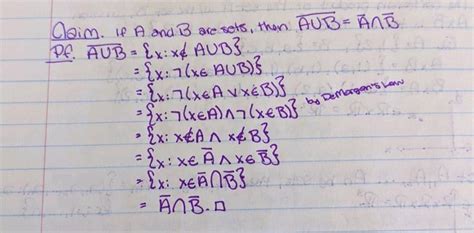 Claim. If A and B are sets, then A̅U̅B̅ = A̅∩B̅
Pf. A̅U̅B̅ = {x: x∉ AUB}
= {x: ¬(x∈ AUB)}
= {x: ¬(x∈A ∨ x∈B)}
= {x: ¬(x∈A)∧¬(x∈B)} by DeMorgan's Law
= {x: x∉A ∧ x∉B}
= {x: x∈ A̅ ∧ x∈B̅}
= {x: x∈A̅∩B̅}
= A̅∩B̅. □